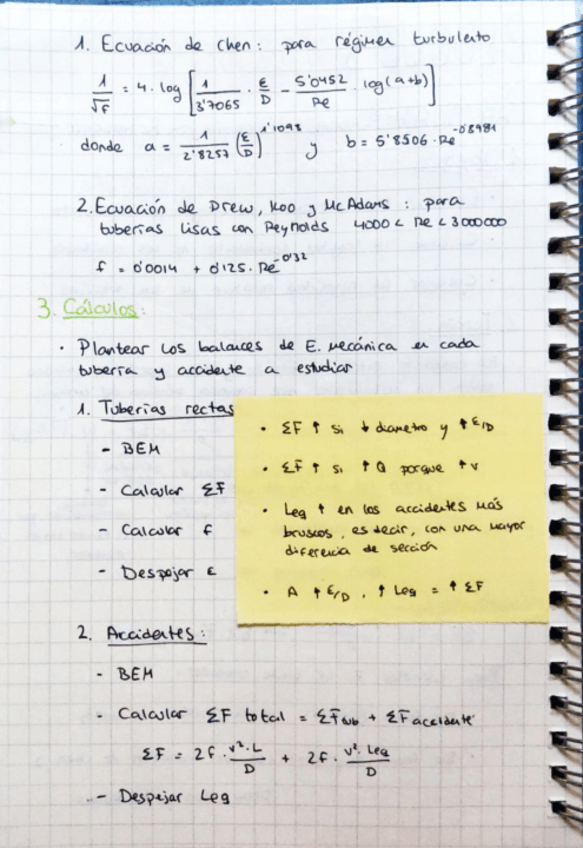 1. Ecuación de Chen: para régimen turbulento
1/√f = 4·log[1/3'7065 · ε/D − 5'0452/Re · log(a+b)]
donde a = 1/2'8257 (ε/D)^1'1098 y b = 5'8506·Re^-0'8981
2. Ecuación de Drew, Koo y McAdams: para
tuberías lisas con Reynolds 4000 < Re < 3000000
f = 0'0014 + 0'125·Re^-0'32
3. Cálculos:
· Plantear los balances de E. mecánica en cada
tubería y accidente a estudiar
1. Tuberías rectas
- BEM
- Calcular ΣF
- Calcular f
- Despejar ε
• ΣF ↑ si ↓ diametro y ↑ε/D
• ΣF ↑ si ↑ Q porque ↑v
• Leq ↑ en los accidentes más
bruscos, es decir, con una mayor
diferencia de sección
• A ↑ε/D, ↑ Leq = ↑ ΣF
2. Accidentes:
- BEM
- Calcular ΣF total = ΣF tub + ΣF accidente
ΣF = 2f · v²·L/D + 2f · v²·Leq/D
- Despejar Leq